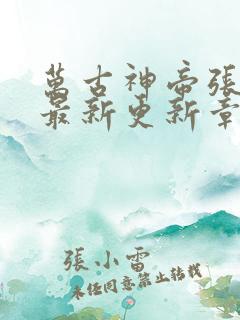 萬古神帝張
最新更新章
張小雷
未任同意禁止轉載